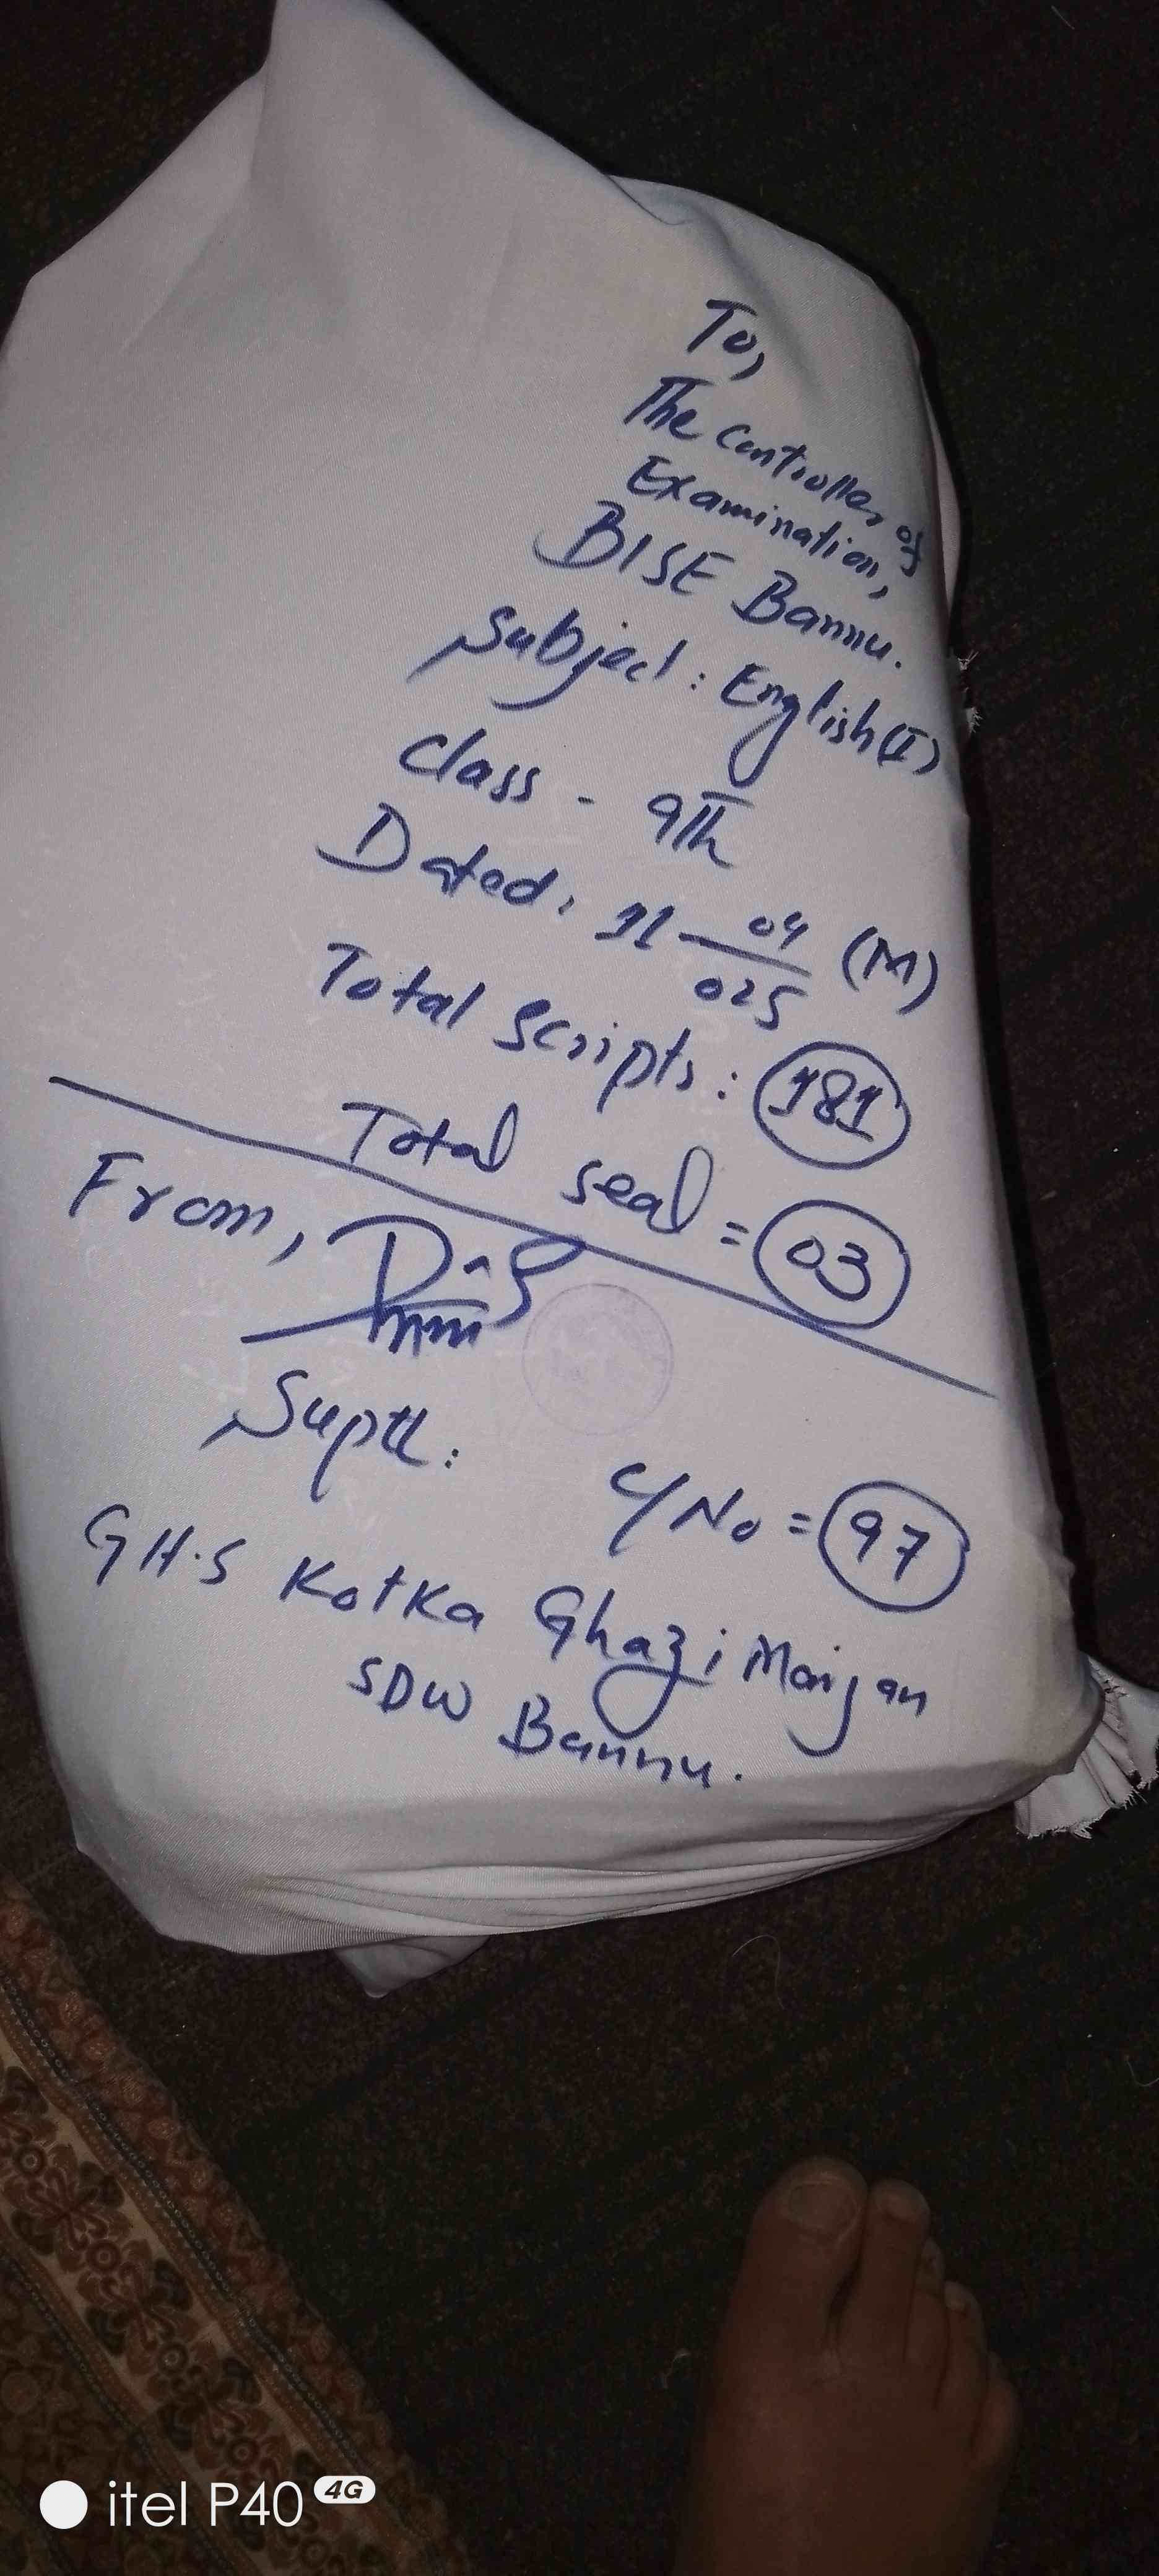 To,
The Controller of
Examination,
BISE Bannu.
Subject: English (I)
Class - 9th
Dated: 11-04/025 (M)
Total Scripts: 181
Total seal = 03
From,
Suptt:
C/No = 97
G.H.S Kotka Ghazi Marjan
SDW Bannu.
itel P40 4G